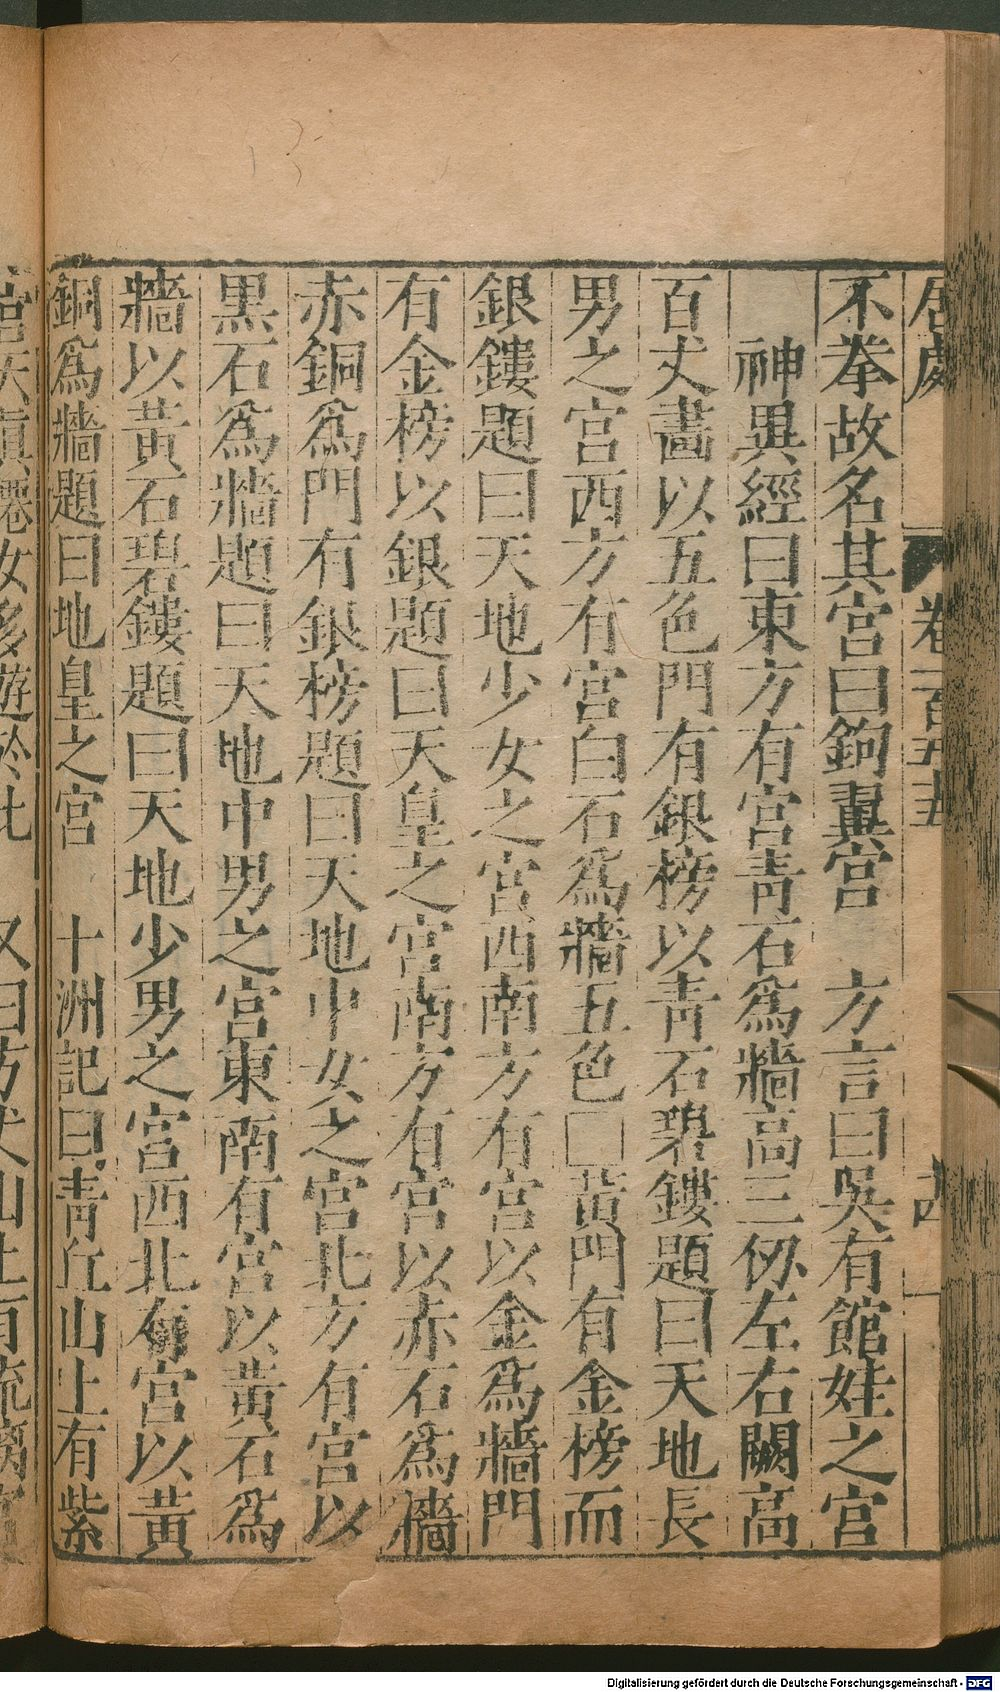 居處 卷一百五十五 十四
不拳故名其宮曰鉤翼宮　方言曰吳有館娃之宮
神異經曰東方有宮青石爲牆高三仞左右闕高
百丈畵以五色門有銀榜以青石碧鏤題曰天地長
男之宮西方有宮白石爲牆五色□黃門有金榜而
銀鏤題曰天地少女之宮西南方有宮以金爲牆門
有金榜以銀題曰天皇之宮南方有宮以赤石爲牆
赤銅爲門有銀榜題曰天地中女之宮北方有宮以
黑石爲牆題曰天地中男之宮東南有宮以黃石爲
牆以黃石碧鏤題曰天地少男之宮西北有宮以黃
銅爲牆題曰地皇之宮　十洲記曰青丘山上有紫
宮天眞僊女多遊於此　又曰方丈山上有琉璃宮
Digitalisierung gefördert durch die Deutsche Forschungsgemeinschaft - DFG